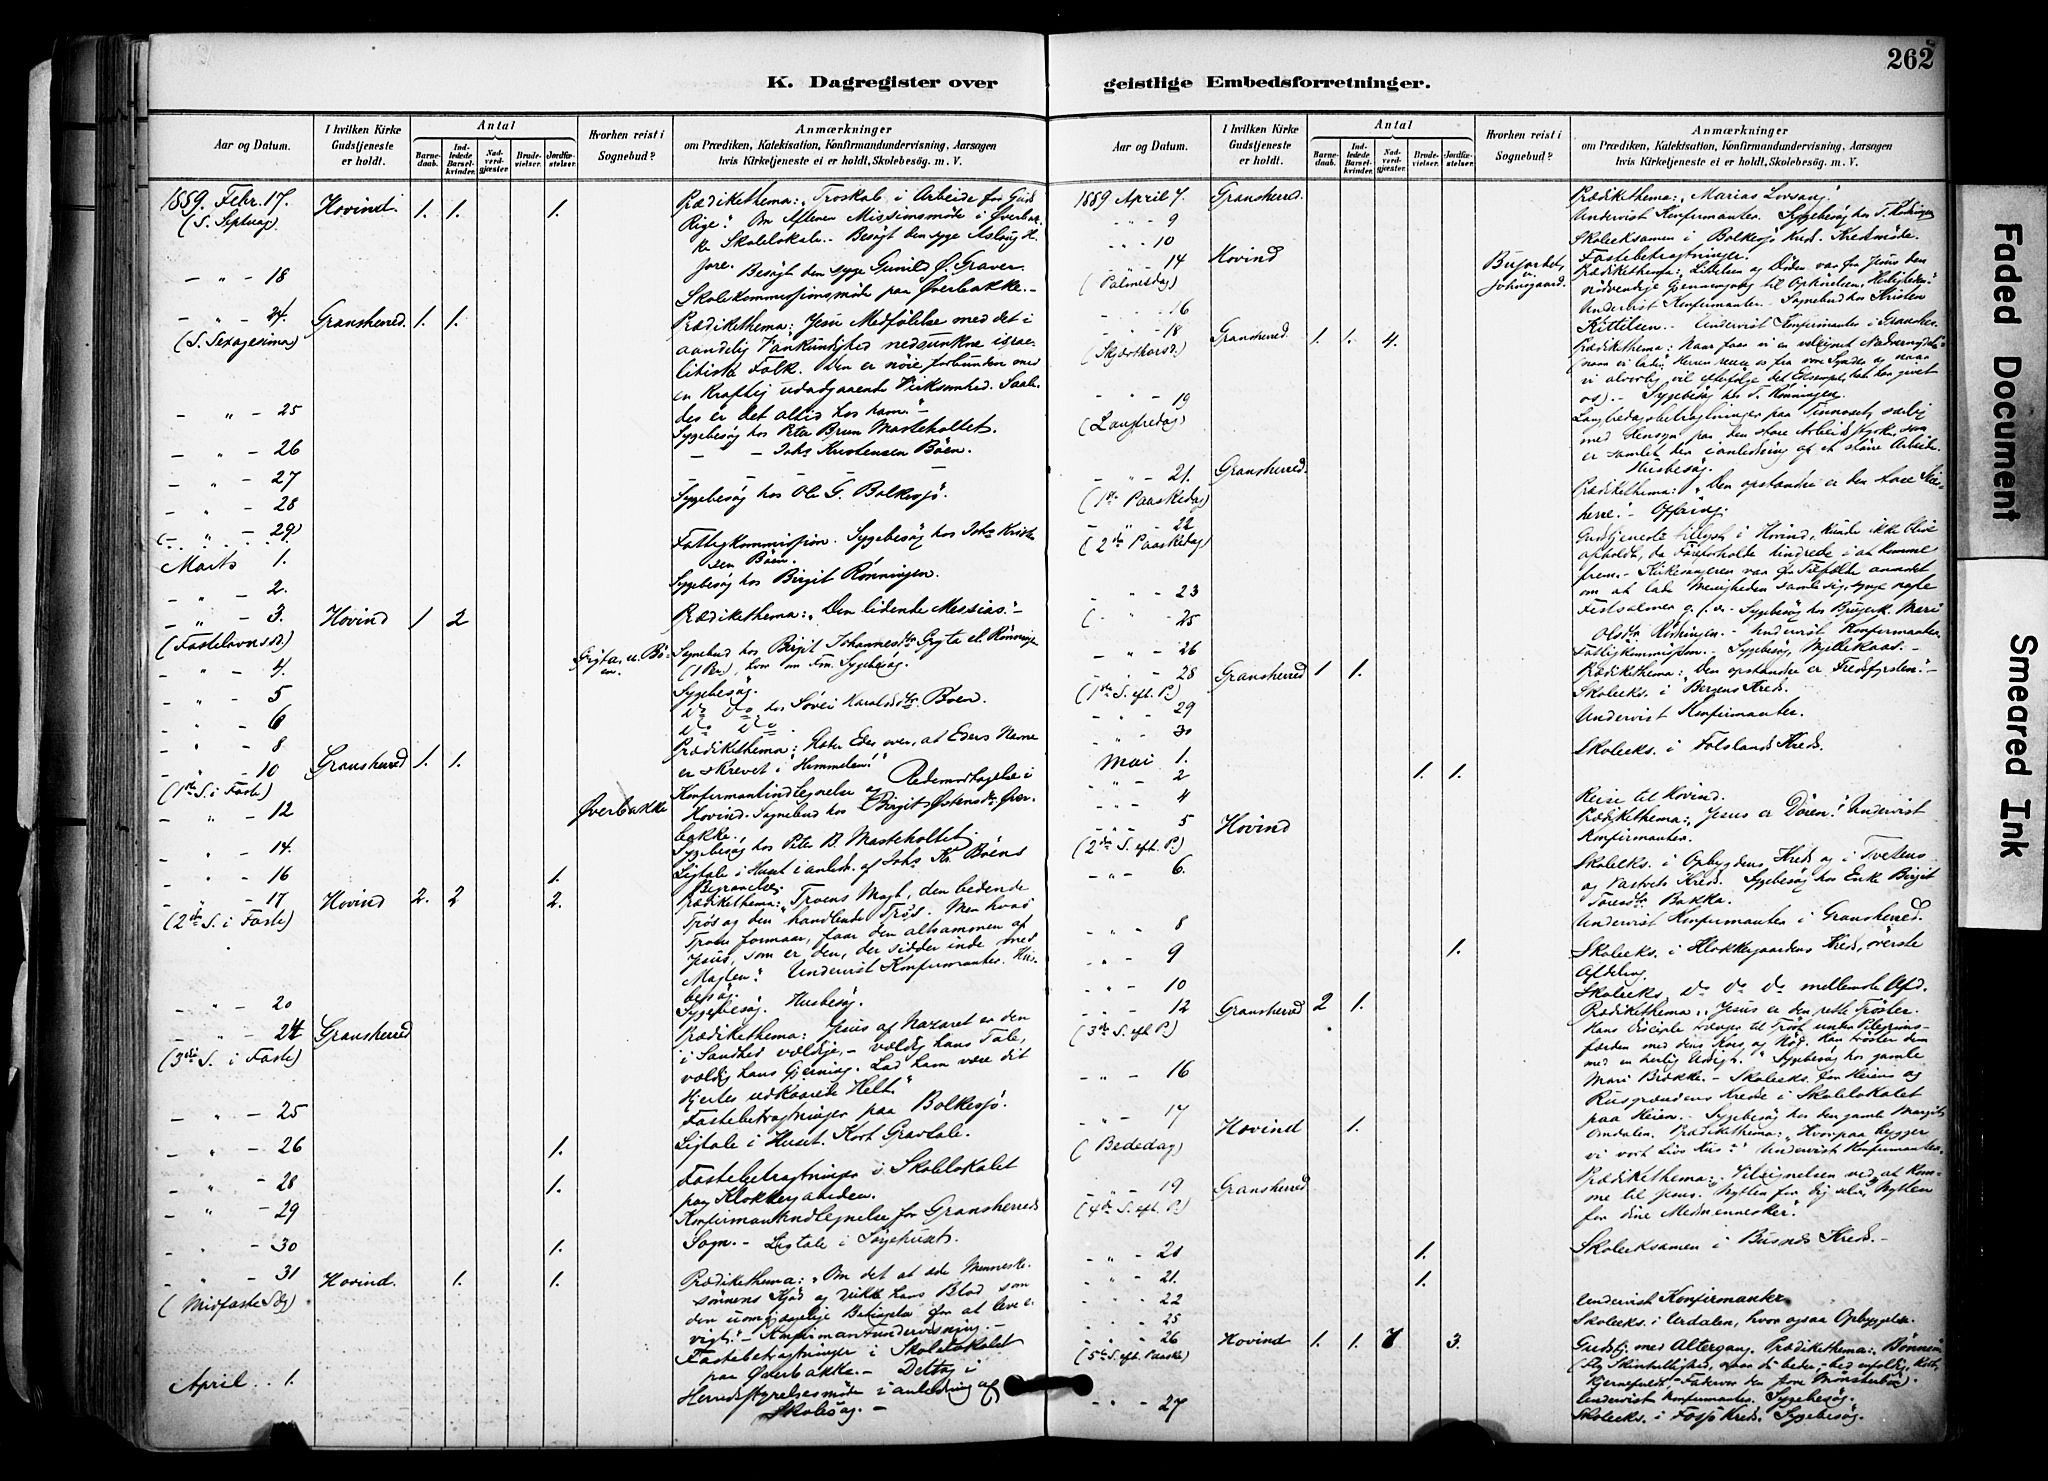 262
K. Dagregister over geistlige Embedsforretninger.
Aar og Datum.
I hvilken Kirke Gudstjeneste er holdt.
Antal
Barnedaab.
Indledede Barselkvinder.
Nadverdgjester
Brudevielser.
Jordfæstelser.
Hvorhen reist i Sognebud?
Anmærkninger
om Prædiken, Katekisation, Konfirmandundervisning, Aarsagen
hvis Kirketjeneste ei er holdt, Skolebesøg. m. V.
1889. Febr. 17. Hovind. 1. 1. 1. Prædikethema: "Troskab i Arbeide for Guds
(S. Septuag) Rige". Om Aftenen Missionsmøde i Øverbak-
ke Skolelokale. Besøgt den syge Aslaug H.
jore.
- " - 18 Besøgt den syge Gunild Ø. Graver.
Skolekommissionsmøde paa Øverbakke.-
- " - 24. Gransherred. 1. 1. Prædikethema: "Jesu Medfølelse med det i
(S. Sexagesima) aandelig Vankundighed nedsunkne israe-
litiske Folk. Den er nøie forbunden med
en kraftig udadgaaende Virksomhed. Saale-
des er det altid hos ham."-
- " - 25 Sygebesøg hos Peter Brun Masteholtet.
- " - 26 - - Johs Kristensen Bøen.
- " - 27 - - -
- " - 28 Sygebesøg hos Ole G. Bolkesjø.
(- " - 29)
Marts 1. Fattigkommission. Sygebesøg hos Johs Krist-
sen Bøen.
- " - 2. Sygebesøg hos Birgit Rønningen.
- " - 3. Hovind 1 2 Prædikethema: "Den lidende Messias".-
(Fastelavnssd.)
- " - 4. Sognebud hos Birgit Johannesdtr Grgta el. Rønninge
Sygebesøg.
- " - 5 Sygebesøg.
- " - 6 Do Do hos Søvei Haraldsdtr. Bøen.
- " - 8 Do Do.
- " - 10 Gransherred 1. 1. Prædikethema: Glæder Eder over, at Eders Navne
(1ste S. i Faste) er skrevet i Himmelen!"
- " - 12 Øverbakke Konfirmantindtegnelse og Redemodtagelse i
Hovind. Sognebud hos Birgit Østensdtr. Øver-
bakke.
- " - 14. Sygebesøg hos Peter B. Masteholtet.
- " - 16 1. Ligtale i Huset i anledn. af Johs Kr. Bøens
Begravelse.
- " - 17 Hovind 2. 2 2. Prædikethema: "Troens Magt, den bedende
(2den S. i Faste) Trøs og den handlende Trøs. Men hvad
Troen formaar, faar den altsammen af
Jesus, som er den, der sidder inde med
Magten." Undervist Konfirmanter. Hus-
besøg.
- " - 20 Sygebesøg. Husbesøg.
- " - 24 Gransherred Prædikethema: Jesus af Nazaret er den
(3die S. i Faste) i Sandhed vældige,- vældig hans Tale,
vældig hans Gjerning. Lad ham være dit
Hjertes udkaarede Helt."
- " - 25 Fastebetragtninger paa Bolkesjø.
- " - 26 1. Ligtale i Huset. Kort Gravtale.
- " - 28 1. Fastebetragtninger i Skolelokalet
paa Klokkergaarden.
- " - 29 Konfirmantindtegnelse for Gransherreds
- " - 30 1. Sogn.- Ligtale i Sørgehuset.
- " - 31 Hovind. 1. 1. Prædikethema: "Om det at æde Menneske-
(Midfaste Sdg) sønnens Kjød og drikke hans Blod som
den uomgjængelige Betingelse for at leve e-
vigt."- Konfirmantundervisning.-
Fastebetragtninger i Skolelokalet
paa Øverbakke.- Deltag i
April 1. Herredsstyrelsesmøde i anledning af
Skolesag.-
Aar og Datum.
I hvilken Kirke Gudstjeneste er holdt.
Antal
Barnedaab.
Indledede Barselkvinder.
Nadverdgjester.
Brudevielser.
Jordfæstelser.
Hvorhen reist i Sognebud?
Anmærkninger
om Prædiken, Katekisation, Konfirmandundervisning, Aarsagen
hvis Kirketjeneste ei er holdt, Skolebesøg. m. V.
1889 April 7. Gransherred. Prædikethema: "Marias Lovsang."
- " - 9 Undervist Konfirmanter. Sygebesøg hos T. Rønningen
- " - 10 Skoleeksamen i Bolkesjø Kreds. Kredsmøde.
Fastebetragtninger.
- " - 14 Hovind Prædikethema: Lidelsen og Døden var for Jesus den
(Palmesdag) nødvendige Gjennemgang til Ophøielsen, Herligheden"
- " - 16 Undervist Konfirmanter.- Sognebud hos Kristen
Kittilsen.- Undervist Konfirmanter i Gransher.
- " - 18 Gransherred 1. 1. 4. Prædikethema: Naar faar vi en velsignet Nadvernydelse?
(Skjærthorsd.) vi alvorlig vil efterfølge det Eksempel, han har givet
os).- Sygebesøg hos T. Rønningen.
- " - 19 Langfredagsbetragtninger paa Tinnoset, særlig
(Langfredag) med Hensyn paa den store Arbeidsstyrke, som
er samlet der i anledning af et større Arbeide.
Husbesøg.
- " - 21. Gransherred. Prædikethema: "Den opstandne er den store Sei-
(1ste Paaskedag) herre!"- Ofring.
- " - 22 Gudstjeneste tillyst i Hovind, kunde ikke blive
(2den Paaskedag) afholdt, da Føreforholde hindrede i at komme
frem.- Kirkesangeren var for Tilfældet anmodet
om at lade Menigheden samle sig, synge nogle
- " - 23 Festsalmer o. s. v.- Sygebesøg hos Brugerk. Mari
( - " - 25 Olsdtr Rønningen.- Undervist Konfirmanter.
- " - 26 Fattigkommission.- Sygebesøg, Myllekaas.-
- " - 28 Gransherred 1 1. Prædikethema: "Den opstandne er Fredsfyrsten!"-
(1ste S. eft. P.) Skoleeks. i Bergens Kreds.
- " - 29 Undervist Konfirmanter.
- " - 30
Mai 1. Skoleeks. i Folslands Kreds.
- " - 2 1. 1.
- " - 4 Reise til Hovind.
- " - 5 Hovind Prædikethema: "Jesus er Døren!" Undervist
(2den S. eft. P.) Konfirmanter.
- " - 6. Skoleeks. i Opbygdens Kreds og i Tvetens
og Vastveits Kreds. Sygebesøg hos Enke Birgit
Toresdtr. Bakka.
- " - 8 Undervist Konfirmanter i Gransherred.
- " - 9 1. Skoleeks. i Klokkergaardens Kreds, øverste
Afdeling.
- " - 10 Skoleeks. Do Do Do mellemste Afd.
- " - 12 Gransherred 2 1. Prædikethema: "Jesus er den rette Trøster.
(3die S. eft. P.) Hans Disciple trænger til Trøst under Pilegrims-
færden med dens Kors og Nød. Han trøster dem
med en herlig Udsigt." Sygebesøg hos gamle
- " - 16 Mari Brække.- Skoleeks. for Heiens og
Rusgrændens Kredse i Skolelokalet
- " - 17 Hovind 1. paa Heien.- Sygebesøg hos den gamle Margit
(Bededag) Omdalen. Prædikethema: "Hvorpaa bygger
vi vort Livs Hus?" Undervist Konfirmanter.
- " - 19 Gransherred Prædikethema: "Velsignelsen ved at kom-
(4de S. eft. P.) me til Jesus. Nytten for dig selv, Nytten
for dine Medmennesker."
- " - 20 1. Skoleeksamen i Busnes Kreds.-
- " - 21. 1.
- " - 22 Undervist Konfirmanter
- " - 25 Skoleeks. i Urdalen, hvor ogsaa Opbyggelse.
- " - 26 Hovind 1. 1. 7 3. Gudstj. med Altergang. Prædikethema: Bønnen
(5te S. eft. Paaske)
Undervist Konfirmanter. Sygebesøg.
- " - 27 Skoleeks. i Fosjø Kreds. Sygebesøg.
Faded Document
Smeared Ink